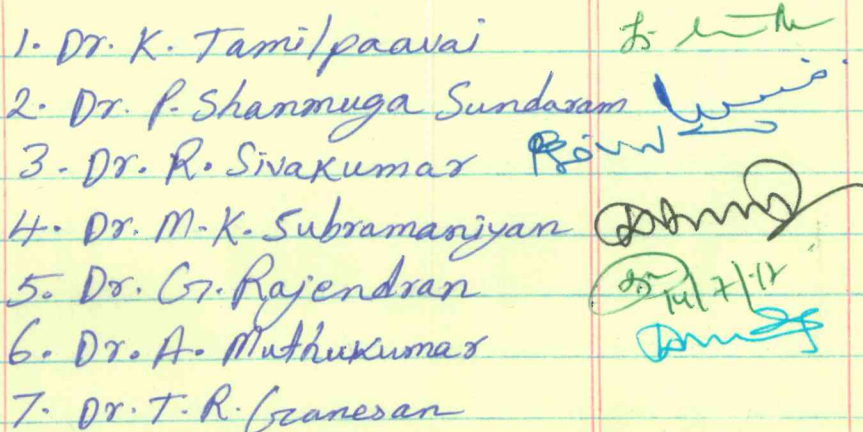 1. Dr. K. Tamilpaavai
2. Dr. P. Shanmuga Sundaram
3. Dr. R. Sivakumar
4. Dr. M. K. Subramaniyan
5. Dr. G. Rajendran 14/7/17
6. Dr. A. Muthukumar
7. Dr. T. R. Ganesan